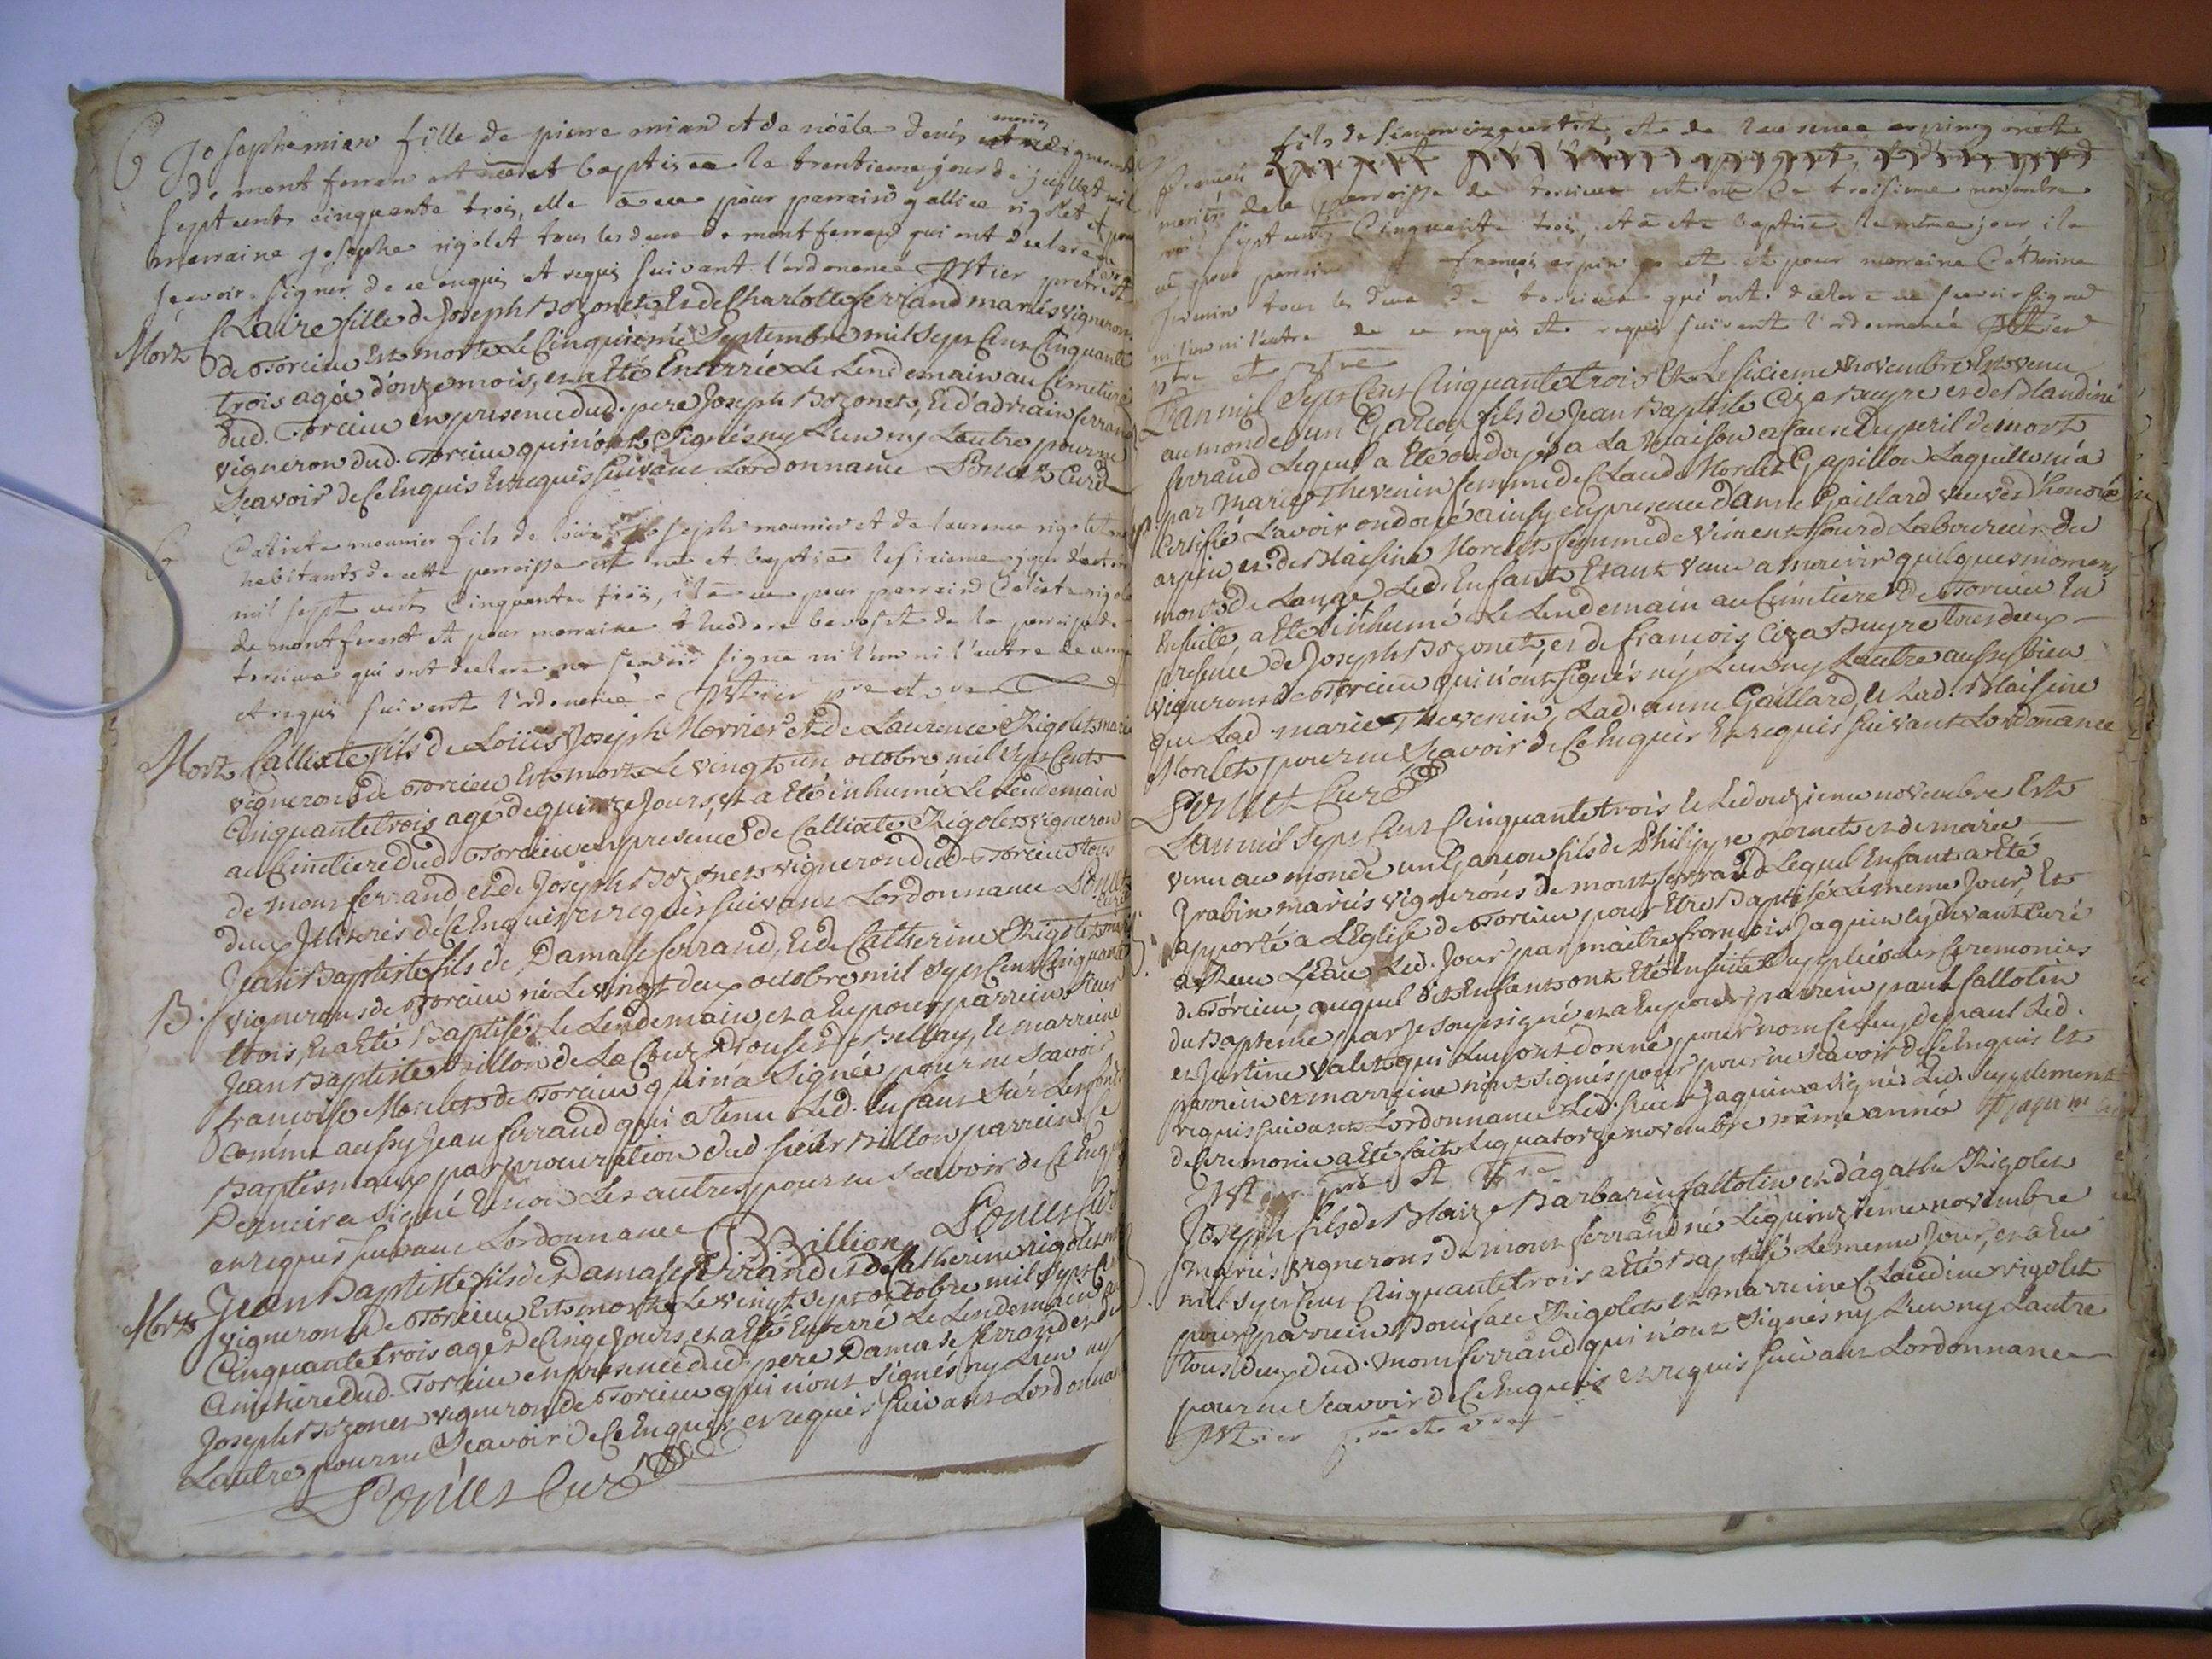 mariés
B Josephe mian fille de pierre mian et de noële denis vignerons
de mont ferran est née et baptisée le trentieme jour de juillet mil
sept cents cinquante trois, elle a eue pour parrain gallice rigolet et pour
marraine josephe rigolet tous les deux de mont ferrand qui ont declare ne
scavoir signer de ce enquis et requis suivant l'ordonence
Mort Claire fille de Joseph Bozonet Et de Charlotte ferrand mariés vignerons
de Torcieu Est morte Le Cinquieme Septembre mil Sept Cent Cinquante
trois agée d'onze mois, et a Eté Enterrée Le Lendemain au Cimetiere
dud. Torcieu en presence dud. pere Joseph Bozonet, Et d'adrian ferrand
vigneron dud. Torcieu qui n'ont Signés ny L'un ny L'autre pour ne
Scavoir de Ce Enquis Et requis suivant Lordonnance Curé
Calixte mounier fils de joseph mounier et de laurence rigolet
habitants de cette parroisse est né et baptisé le sixieme jour d'octobre
mil sept cents cinquante trois, il a eu pour parrain Calixte rigolet
de mont ferant et pour marraine de la parroisse de
torcieu qui ont declare ne scavoir signe ni l'un ni l'autre de ce enquis
et requis suivent l'ordonence
Mort Callixte fils de Loüis Joseph Morrier et de Laurence Rigolet mariés
vignerons de Torcieu Est mort Le vingt un octobre mil Sept Cent
Cinquante trois agé de quinze Jours, et a Eté inhumé Le Lendemain
au Cimetiere dud Torcieu en presence de Callixte Rigolet vigneron
de mont ferrand, et de Joseph Bozonet vigneron dud. Torcieu tous
deux Illiterés de Ce Enquis et requis suivant Lordonnance
curé
Jean Baptiste fils de Damase ferrand, Et de Catherine Rigolet mariés
B. vignerons de Torcieu né Le vingt deux octobre mil Sept Cent Cinquante
trois, Et a Eté Baptisé Le Lendemain, et a Eu pour parrein Sieur
Jean Baptiste Billion de La Cour de Belley, Et marreine
françoise Morelet de Torcieu qui n'a Signée pour ne Scavoir
Comme aussy Jean ferrand qui a tenu Led. Enfant Sur Les fonds
Baptismaux par procuration dud sieur Billion parrein Ce
Dernier a signé Et non Les autres pour ne Scavoir de Ce Enquis
et requis suivant Lordonnance Billion
Mort Jean Baptiste fils de Damase ferrand et de Catherine rigolet mariés
vignerons de Torcieu Est mort Le vingt sept octobre mil Sept Cent
Cinquante trois agé de Cinq Jours, et a Eté Enterré Le Lendemain au
Cimetiere dud. Torcieu en presence dud. pere Damase ferrand et de
Joseph Bozonet vigneron de Torcieu qui n'ont signés ny L'un ny
Lautre pour ne Scavoir de Ce Enquis et requis suivant Lordonnance
Curé
fils de et de laurence
françois
mariés de la parroisse de torcieu est né le troisieme novembre
mil sept cents Cinquante trois, et a ete baptisé le même jour il a
eu pour parrain françois arpin et pour marraine Catherine
tous les deux de torcieu qui ont declare ne scavoir signer
ni l'un ni l'autre de ce enquis et requis suivent l'ordonnence
L'an mil Sept Cent Cinquante trois Et Le Sixieme novembre Est venu
au monde un Garçon fils de Jean Baptiste et de Blandine
ferrand Lequel a Eté ondoyé a La Maison a Cause du peril de mort
par Marie Thevenin femme de Claude Morelet Laquelle m'a
Certifié L'avoir ondoyé ainsy en presence d'anne Gaillard veuve d'honoré
arpin et de Blaisine Morelet femme de Vincent Laboureur de
mont de Lange Led. Enfant Etant venu a mourir quelques momens
Ensuite a Eté inhumé Le Lendemain au Cimitiere de Torcieu En
presence de Joseph Bozonet, et de françois tous deux
vignerons de Torcieu qui n'ont signés ny L'un ny Lautre aussy bien
que Lad marie Thevenin, Lad. anne Gaillard, et Lad. Blaisine
Morelet pour ne Scavoir de Ce Enquis Et requis suivant Lordonnance
Curé
L'an mil Sept Cent Cinquante trois Et Le douzieme novembre Est
venu au monde un Garçon fils de Philippe et de marie
Jrabin mariés vignerons de mont ferrand Lequel Enfant a Eté
apporté a L'Eglise de Torcieu pour Etre Baptisé Le meme Jour, Et
a Reçu L'Eau Led. Jour par maitre françois Jaquin Cy devant Curé
de Torcieu, auquel dit Enfant ont Eté Ensuite Supplées Les Ceremonies
du Baptême par Je soussigné et a Eu pour parrein paul fallotin
et Justine valet qui Luy ont donné pour nom Celuy de paul Led.
parrein et marreine n'ont signés pour ne Scavoir de Ce Enquis Et
requis suivant Lordonnance Led. Sieur Jaquin a signé Led. Supplement
de Ceremonie a Eté fait Le quatorze novembre même année f jaquin
Joseph fils de Blaize Barbarin fallotin et d'agathe Rigolet
mariés vignerons de mont ferrand né Le quinzieme novembre
mil sept Cent Cinquante trois a Eté Baptisé Le meme Jour, et a Eu
pour parrein Boniface Rigolet et marreine Claudine rigolet
tous deux dud. mont ferrand qui n'ont signés ny L'un ny Lautre
pour ne Scavoir de Ce Enquis et requis suivant Lordonnance